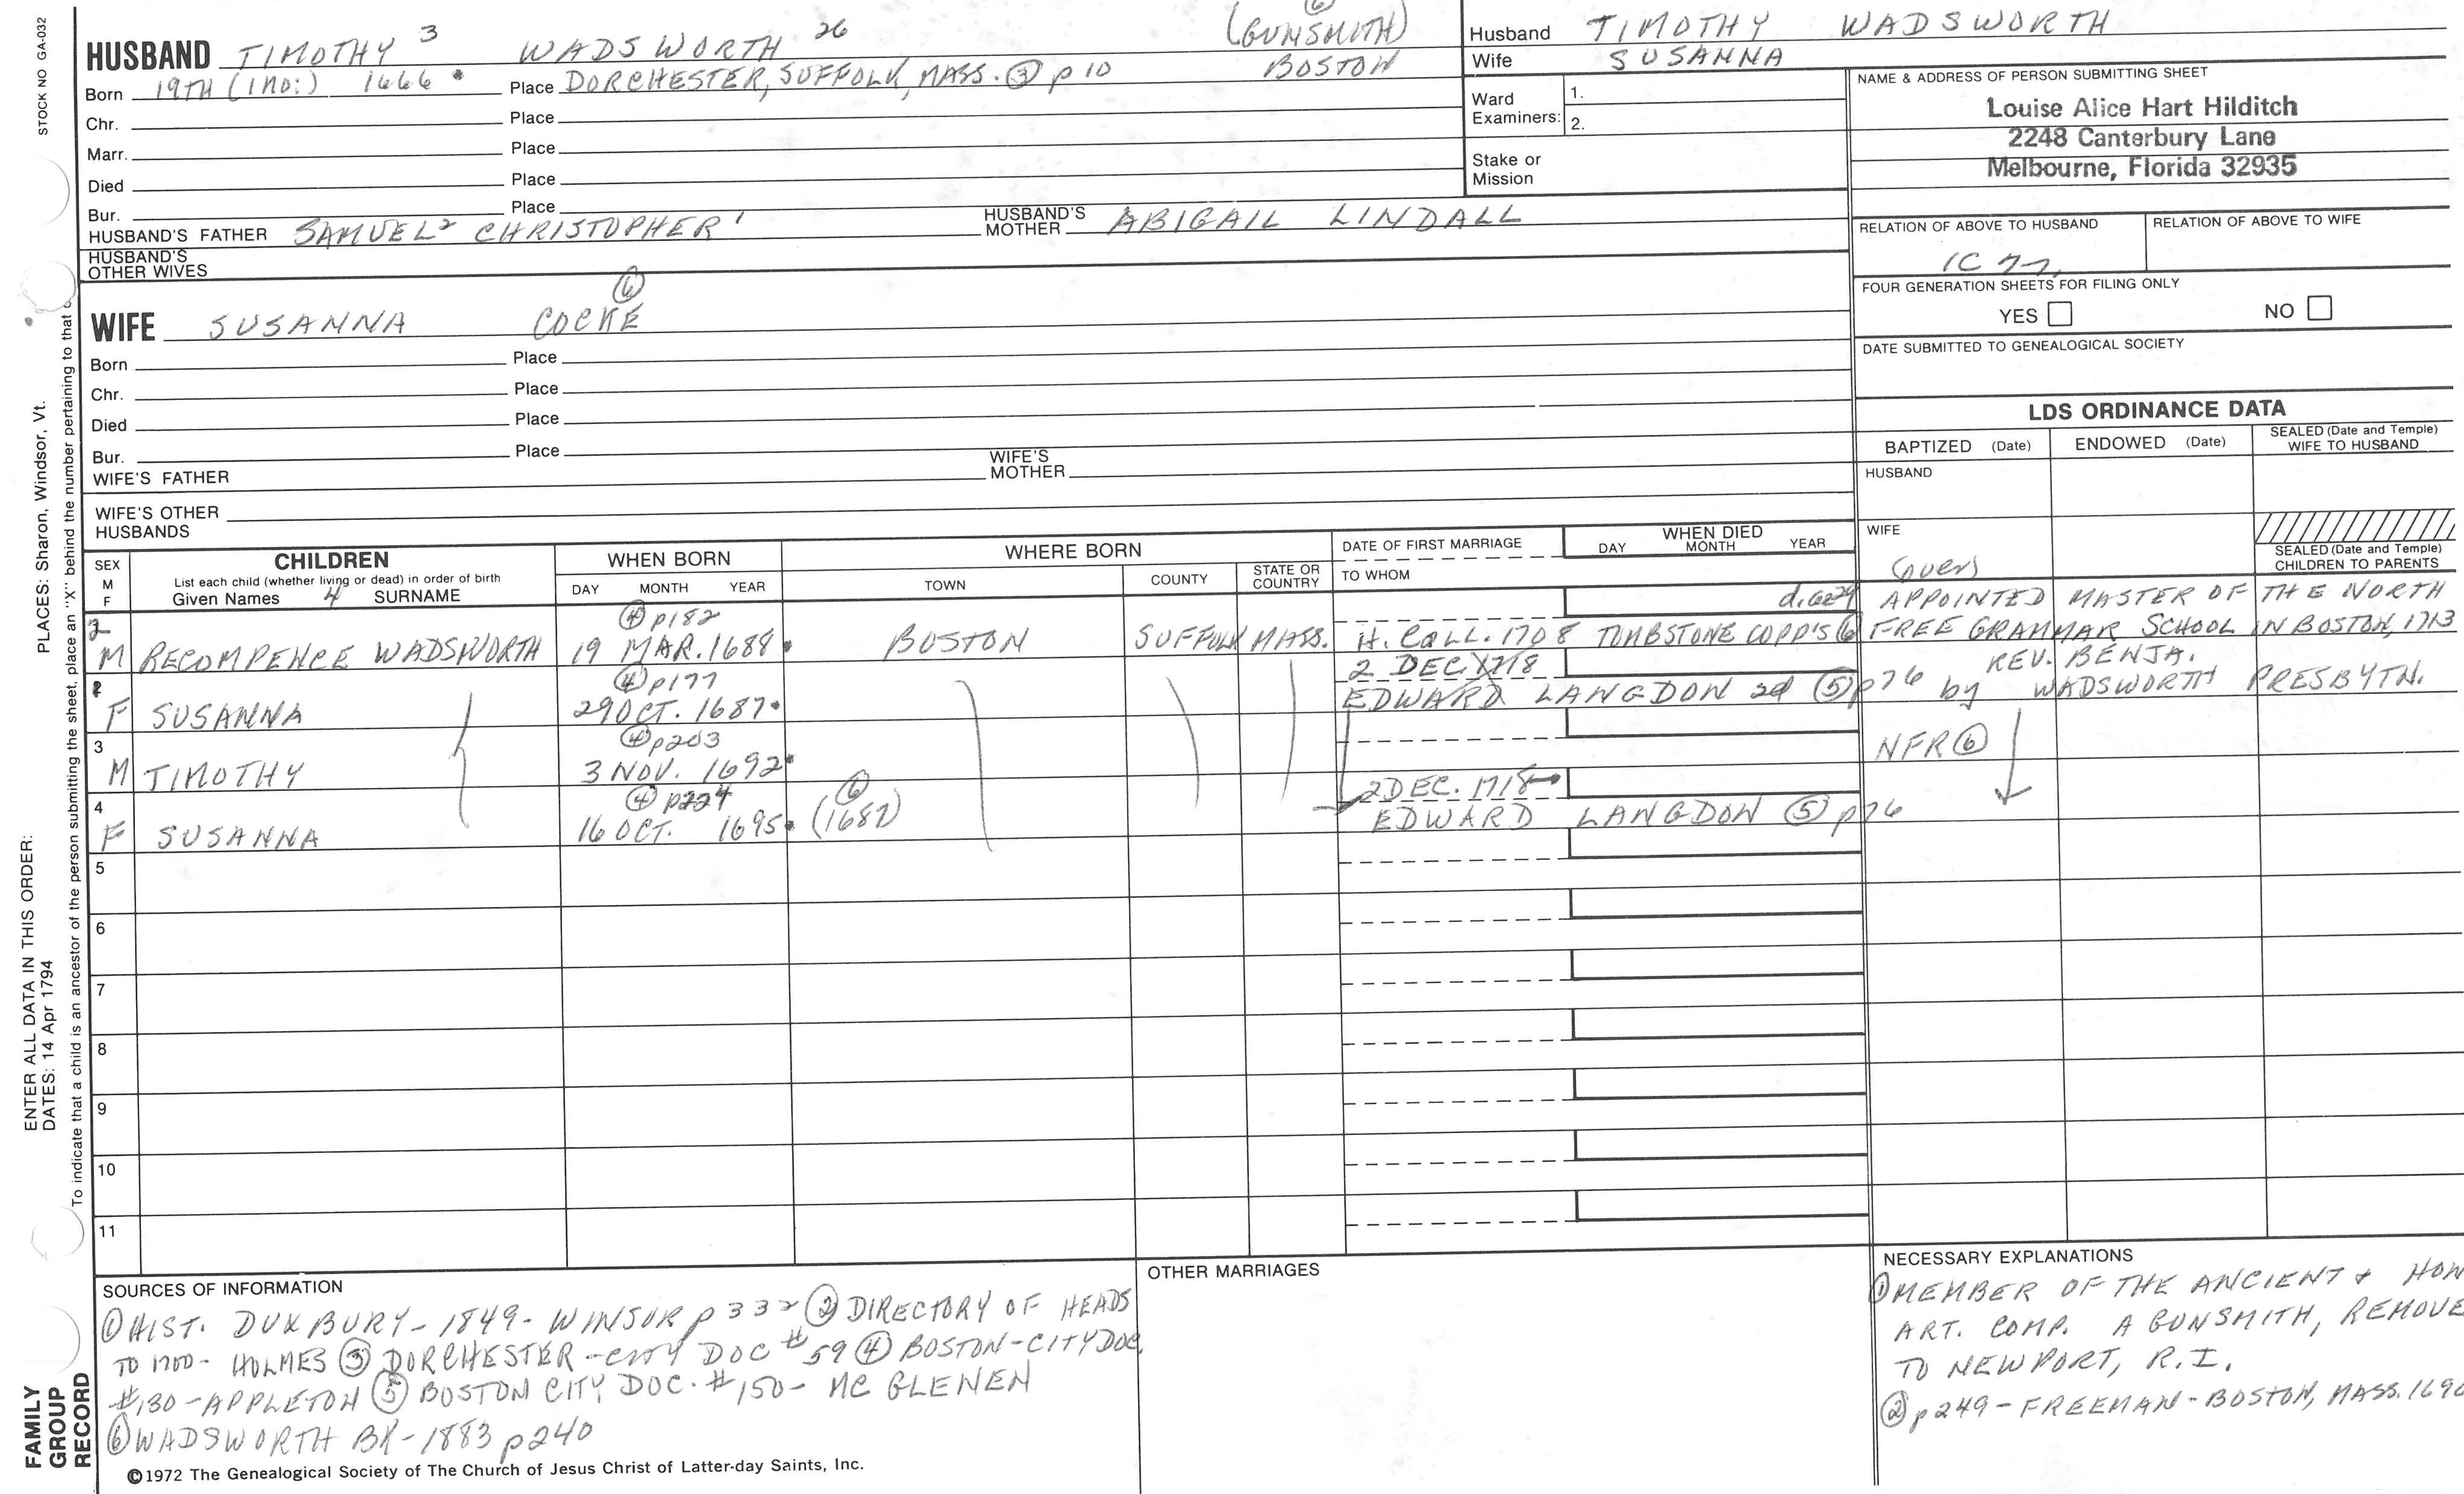 STOCK NO GA-032
HUSBAND TIMOTHY 3 WADSWORTH 26 (GUNSMITH) 6
Born 19TH (1 MO:) 1666 Place DORCHESTER, SUFFOLK, MASS. ③ p 10 BOSTON
Chr. Place
Marr. Place
Died Place
Bur. Place
HUSBAND'S FATHER SAMUEL 2 CHRISTOPHER 1 HUSBAND'S MOTHER ABIGAIL LINDALL
HUSBAND'S OTHER WIVES
Husband TIMOTHY WADSWORTH
Wife SUSANNA
Ward Examiners: 1.
2.
Stake or Mission
NAME & ADDRESS OF PERSON SUBMITTING SHEET
Louise Alice Hart Hilditch
2248 Canterbury Lane
Melbourne, Florida 32935
RELATION OF ABOVE TO HUSBAND
RELATION OF ABOVE TO WIFE
1C
FOUR GENERATION SHEETS FOR FILING ONLY
YES NO
DATE SUBMITTED TO GENEALOGICAL SOCIETY
⑥
WIFE SUSANNA COCKE
Born Place
Chr. Place
Died Place
Bur. Place
WIFE'S FATHER WIFE'S MOTHER
WIFE'S OTHER HUSBANDS
LDS ORDINANCE DATA
BAPTIZED (Date) ENDOWED (Date) SEALED (Date and Temple) WIFE TO HUSBAND
HUSBAND
WIFE
SEALED (Date and Temple) CHILDREN TO PARENTS
(over)
SEX M F
CHILDREN
List each child (whether living or dead) in order of birth
Given Names 4 SURNAME
WHEN BORN
DAY MONTH YEAR
WHERE BORN
TOWN COUNTY STATE OR COUNTRY
DATE OF FIRST MARRIAGE
TO WHOM
WHEN DIED
DAY MONTH YEAR
④ p182 APPOINTED MASTER OF THE NORTH
2 M RECOMPENCE WADSWORTH 19 MAR. 1688 BOSTON SUFFOLK MASS. H. COLL. 1708 TOMBSTONE COPP'S ⑥ FREE GRAMMAR SCHOOL IN BOSTON, 1713
④ p177 2 DEC 1718 REV. BENJA.
F SUSANNA 29 OCT. 1687 EDWARD LANGDON ⑤ p76 by WADSWORTH PRESBYTN.
3 ④ p203
M TIMOTHY 3 NOV. 1692 NFR ⑥
4 ④ p224 ⑥ 2 DEC. 1718
F SUSANNA 16 OCT. 1695 (1687) EDWARD LANGDON ⑤ p76
5
6
7
8
9
10
11
SOURCES OF INFORMATION
① HIST. DUXBURY - 1849 - WINSOR p 332 ② DIRECTORY OF HEADS
TO 1700 - HOLMES ③ DORCHESTER - CITY DOC #59 ④ BOSTON - CITY DOC.
#130 - APPLETON ⑤ BOSTON CITY DOC. #150 - MC GLENEN
⑥ WADSWORTH BK - 1883 p240
©1972 The Genealogical Society of The Church of Jesus Christ of Latter-day Saints, Inc.
OTHER MARRIAGES
NECESSARY EXPLANATIONS
① MEMBER OF THE ANCIENT & HON
ART. COMP. A GUNSMITH, REMOVE
TO NEWPORT, R.I.
② p249 - FREEMAN - BOSTON, MASS. 1690
ENTER ALL DATA IN THIS ORDER:
DATES: 14 Apr 1794 PLACES: Sharon, Windsor, Vt.
To indicate that a child is an ancestor of the person submitting the sheet, place an "X" behind the number pertaining to that
FAMILY GROUP RECORD